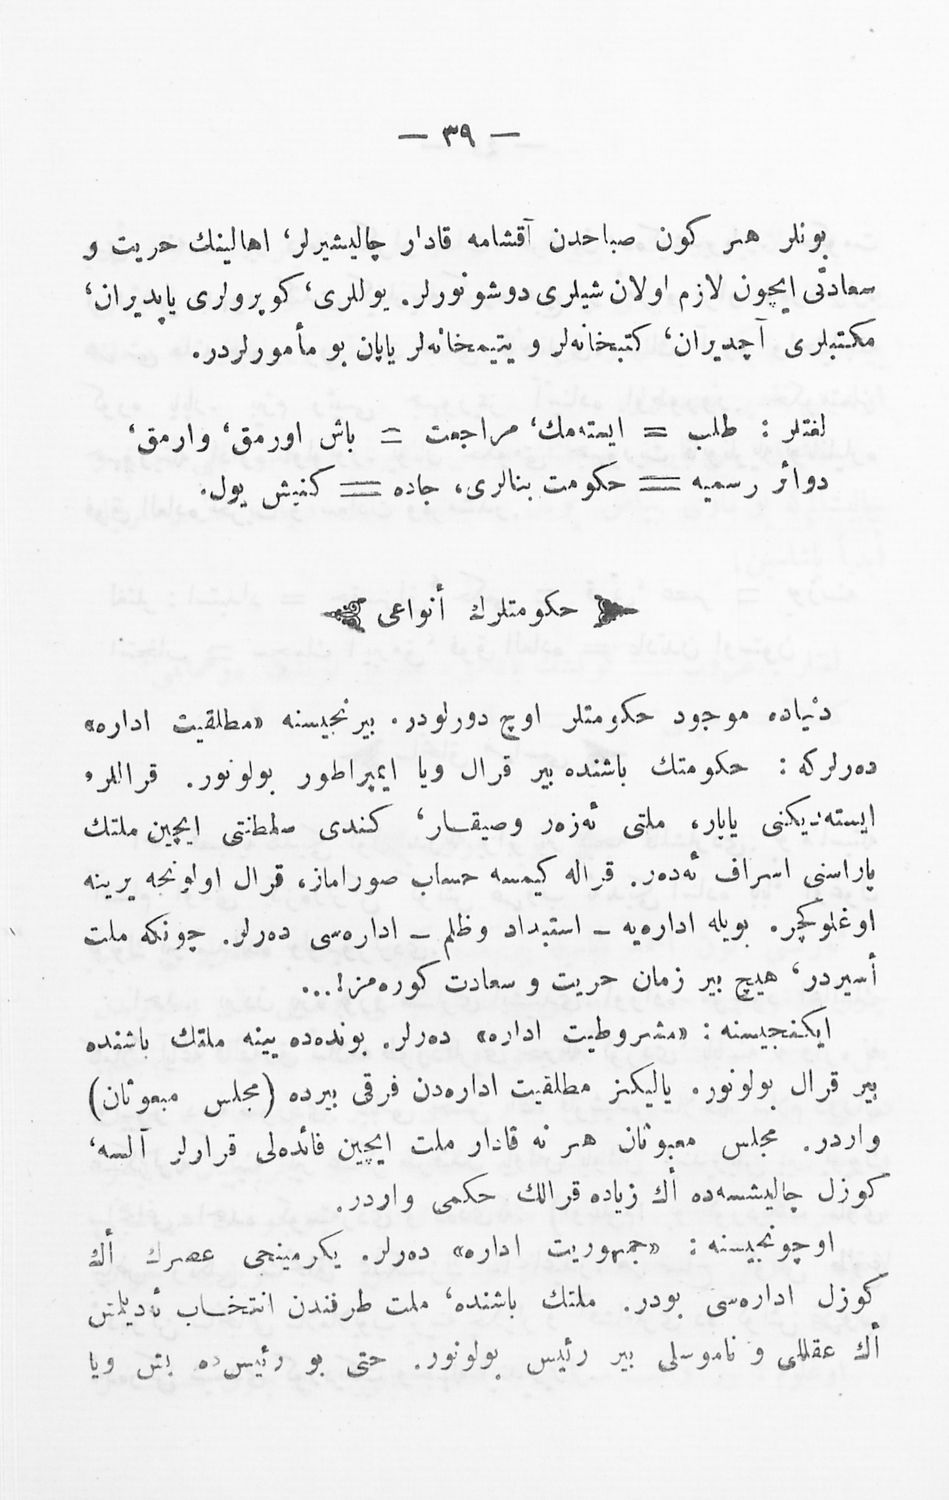 — ٣٩ —
بونلر هر كون صباحدن آقشامه قادار چاليشيرلر، اهالينك حريت و
سعادتى ايچون لازم اولان شيلرى دوشونورلر. يوللرى، كوپرولرى ياپديران،
مكتبلرى آچديران، كتبخانه‌لر و يتيمخانه‌لر ياپان بو مأمورلردر.
لغتلر : طلب = ايسته‌مك، مراجعت = باش اورمق، وارمق،
دوائر رسميه = حكومت بنالرى، جاده = كنيش يول.
حكومتلرك أنواعى
دنياده موجود حكومتلر اوچ دورلودر. بيرنجيسنه «مطلقيت اداره»
ده‌رلركه : حكومتك باشنده بير قرال ويا ايمپراطور بولونور. قراللر
ايسته‌ديكنى ياپار، ملتى ئه‌زه‌ر وصيقار، كندى سلطنتى ايچين ملتك
پاراسنى اسراف ئه‌ده‌ر. قراله كيمسه حساب صوراماز، قرال اولونجه يرينه
اوغلوكچر. بويله اداره‌يه ــ استبداد وظلم ــ اداره‌سى ده‌رلر. چونكه ملت
أسيردر، هيچ بير زمان حريت و سعادت كوره‌مز!...
ايكنجيسنه : «مشروطيت اداره» ده‌رلر. بونده‌ده يينه ملتك باشنده
بير قرال بولونور. يالیكز مطلقيت اداره‌دن فرقى بيرده (مجلس مبعوثان)
واردر. مجلس معبوثان هر نه قادار ملت ايچين فائده‌لى قرارلر آلسه،
كوزل چاليشسه‌ده أك زياده قرالك حكمى واردر.
اوچونجيسنه : «جمهوريت اداره» ده‌رلر. يكرمينجى عصرك أك
كوزل اداره‌سى بودر. ملتك باشنده، ملت طرفندن انتخاب ئه‌ديلمش
أك عقللى و ناموسلى بير رئيس بولونور. حتى بو رئيس‌ده بش ويا